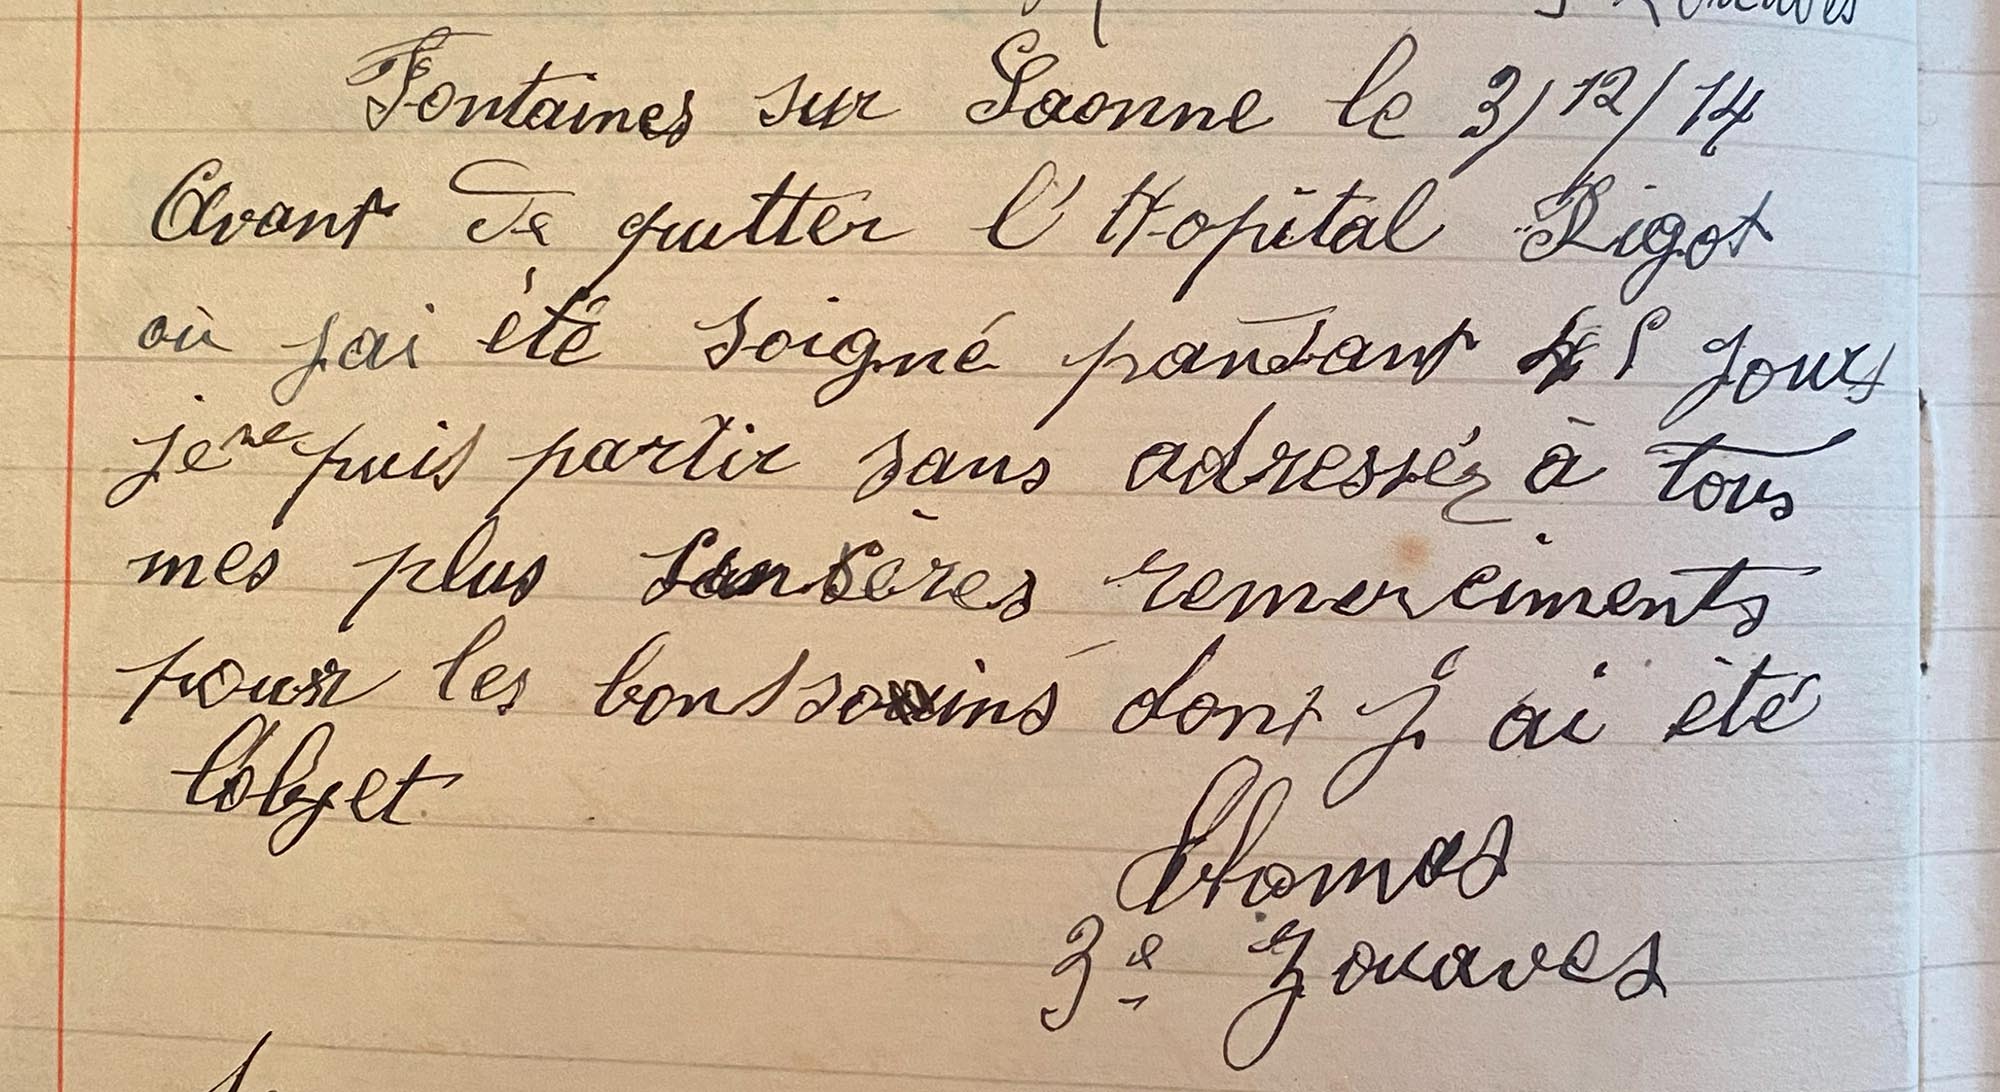 Fontaines sur Saonne le 3/12/14
Avant de quitter l'Hopital Rigot
où j'ai été soigné pandant jours
je ne puis partir sans adressér à tous
mes plus sensères remerciments
pour les bons soins dont j'ai été
l'objet
Thomas
3e Zouaves